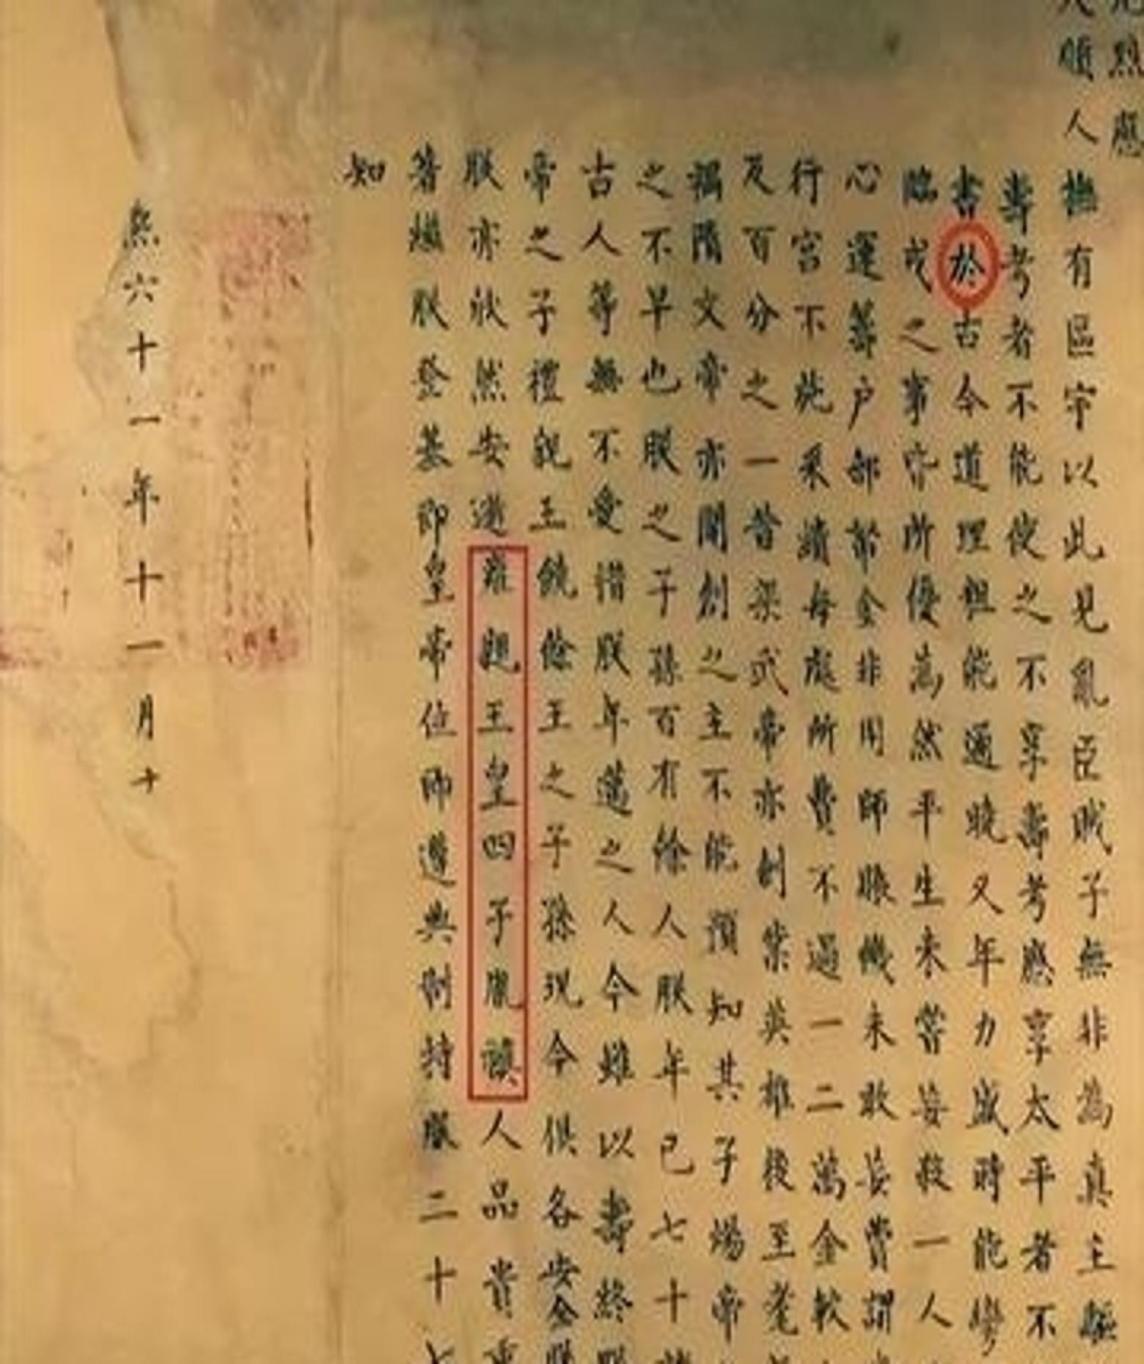 烈應
順人撫有區宇以此見亂臣賊子無非為真主驅
壽考者不能使之不享壽考應享太平者不
書於古今道理粗能通曉又年力盛時能彎
臨戎之事亦所優為然平生未嘗妄殺一人
心運籌户部帑金非用師賑饑未敢妄費謂
行宮不施采繢每處所費不過一二萬金較
及百分之一昔梁武帝亦創業英雄後至耄
禍隋文帝亦開創之主不能預知其子煬帝
之不早也朕之子孫百有餘人朕年已七十
古人等無不愛惜朕年邁之人今雖以壽終朕
帝之子禮親王饒餘王之子孫現今俱各安全朕
朕亦欣然安逝雍親王皇四子胤禛人品貴重
著繼朕登基即皇帝位即遵典制持服二十七
知
熙六十一年十一月十